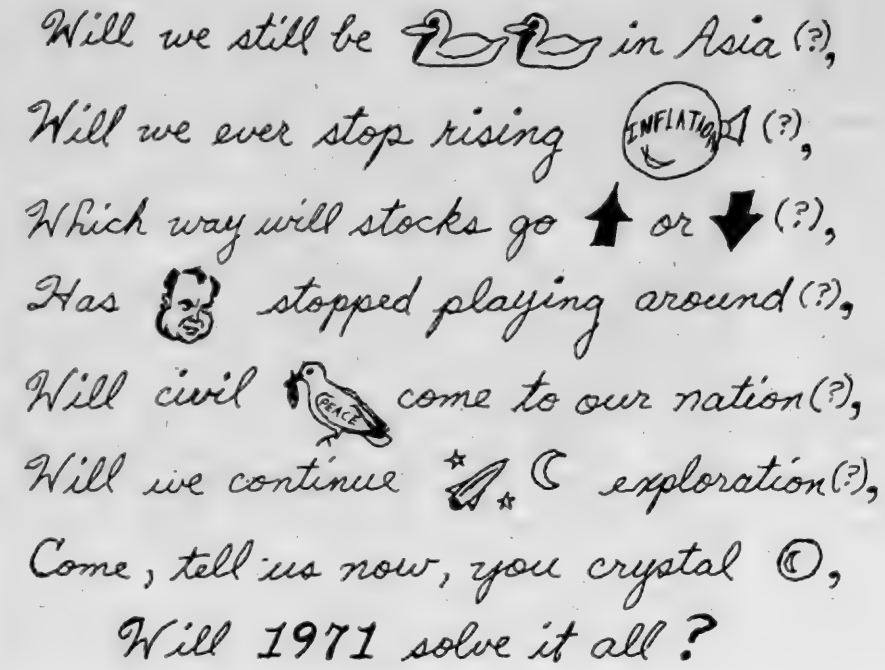 Will we still be in Asia (?),
Will we ever stop rising INFLATION (?),
Which way will stocks go or (?),
Has stopped playing around (?),
Will civil PEACE come to our nation (?),
Will we continue exploration (?),
Come, tell us now, you crystal ,
Will 1971 solve it all ?